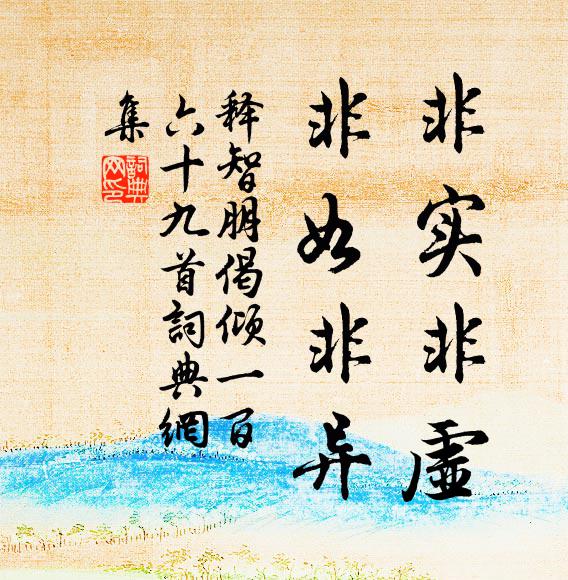 非实非虚
非如非异
释智朋偈倾一百
六十九首詞典網
集
詞典
网印